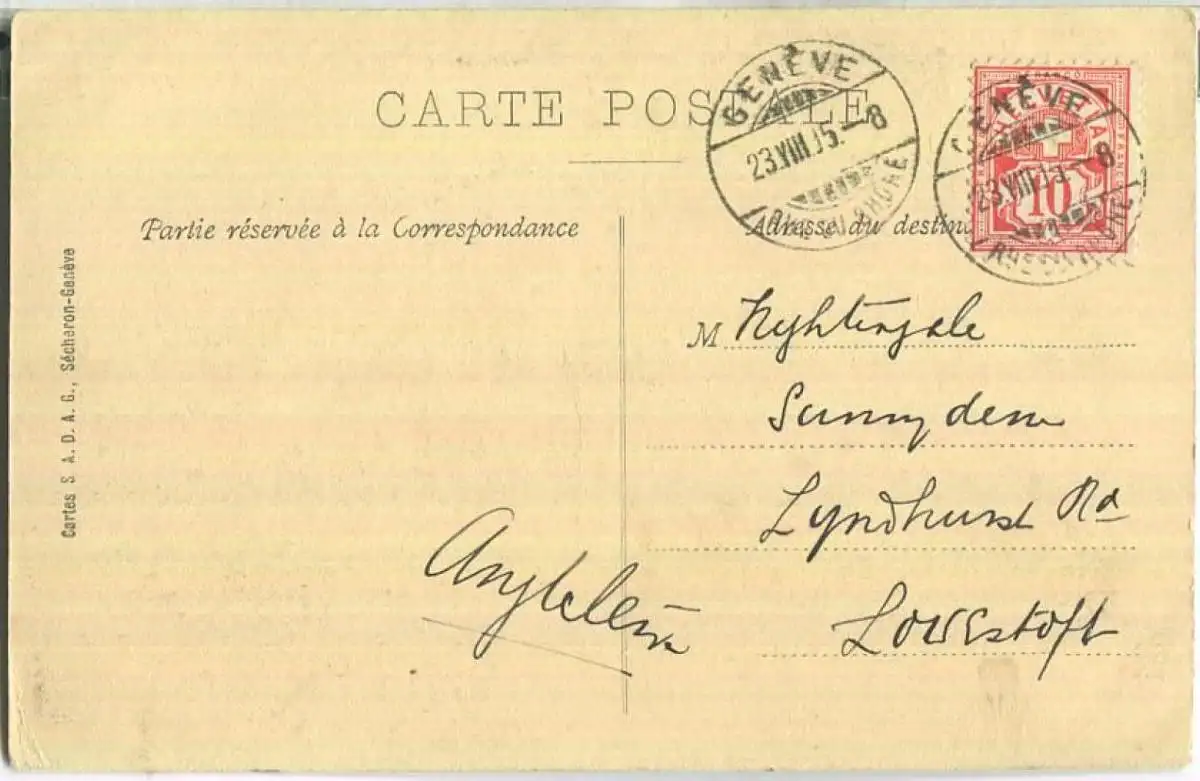 CARTE POSTALE
GENÈVE
23.VIII.05.–8
GENÈVE
23.VIII.05.–8
10
Partie réservée à la Correspondance
Adresse du destin
Cartes S. A. D. A. G., Sécheron-Genève
M Nightingale
Sunnydene
Lyndhurst Rd
Lowestoft
Angleterre